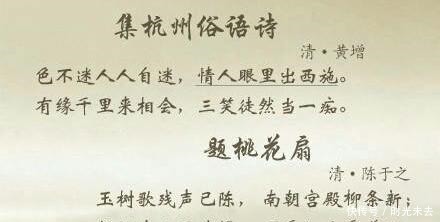 集杭州俗语诗
清·黄增
色不迷人人自迷，情人眼里出西施。
有缘千里来相会，三笑徒然当一痴。
题桃花扇
清·陈于之
玉树歌残声已陈，南朝宫殿柳条新；
快传号/时光未去